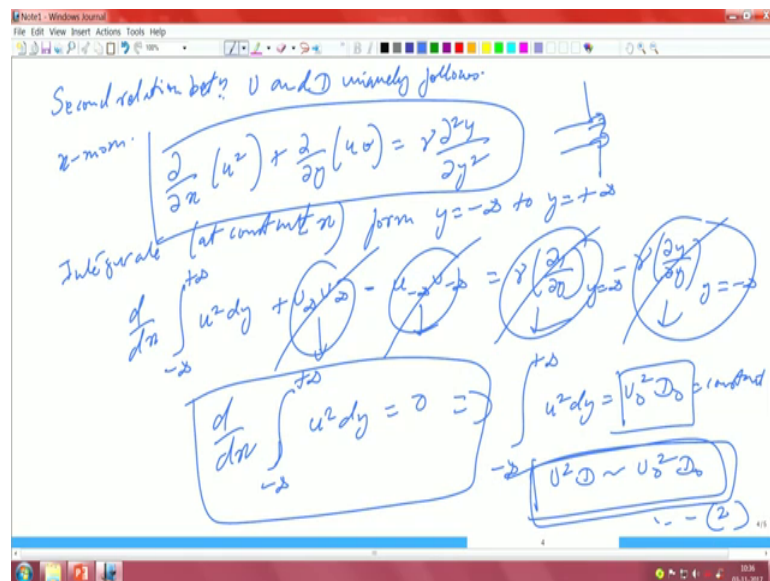 Note1 - Windows Journal
File Edit View Insert Actions Tools Help
Second relation betn U and D uniquely follows.
x-mom. ∂/∂x (u²) + ∂/∂y (uv) = ν ∂²u/∂y²
Integrate (at constant x) form y = -∞ to y = +∞
d/dx ∫_{-∞}^{+∞} u² dy + u_∞ v_∞ - u_{-∞} v_{-∞} = ν (∂u/∂y)_{y=∞} - ν (∂u/∂y)_{y=-∞}
d/dx ∫_{-∞}^{+∞} u² dy = 0 ⇒ ∫_{-∞}^{+∞} u² dy = U₀² D₀ = constant
U² D ~ U₀² D₀
... (2)
4/5
4
10:36
03-11-2017